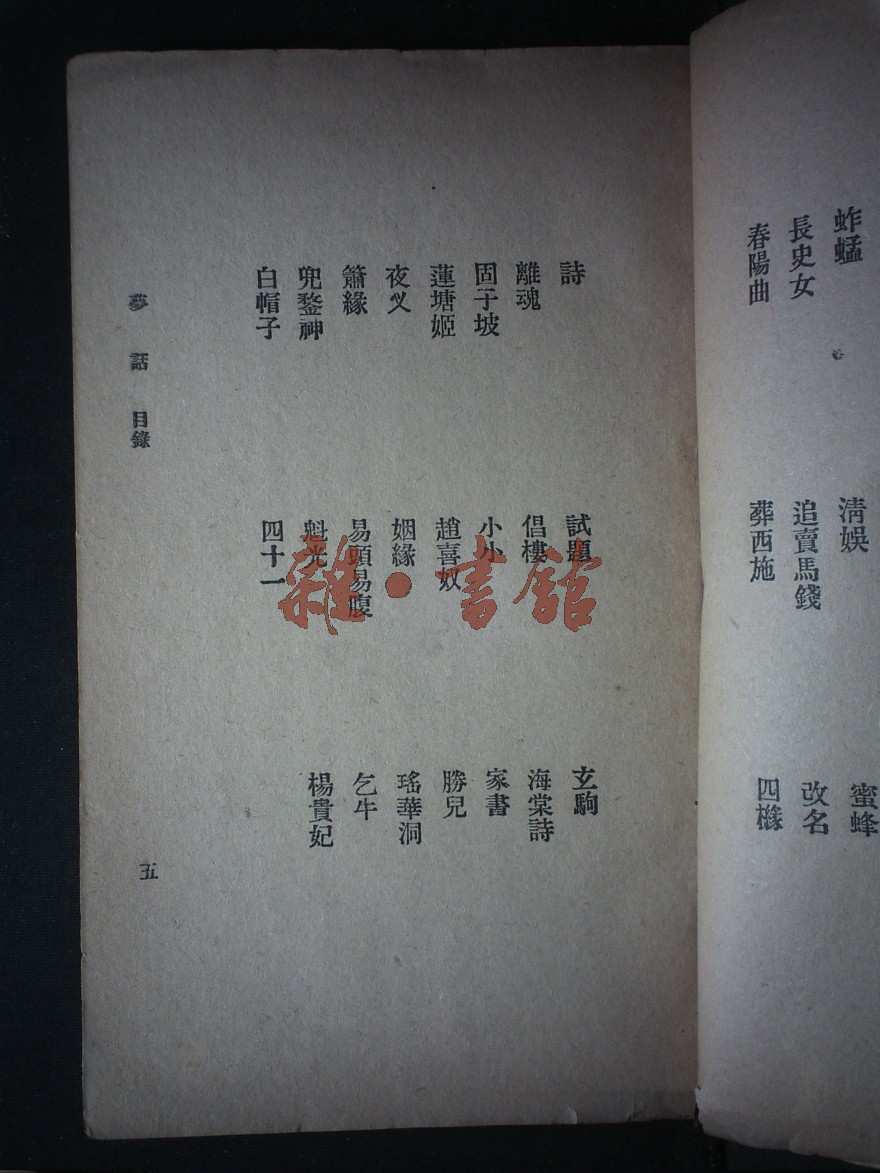 蚱蜢
清娛
蜜蜂
長史女
追賣馬錢
改名
春陽曲
葬西施
詩
試題
玄駒
離魂
倡樓
海棠詩
固子坡
小小
家書
蓮塘姬
趙喜奴
勝兒
夜叉
姻緣
瑤華洞
簫緣
易頭易腹
乞牛
兜鍪神
魁光
楊貴妃
白帽子
四十一
夢話 目錄
五
雜·書館